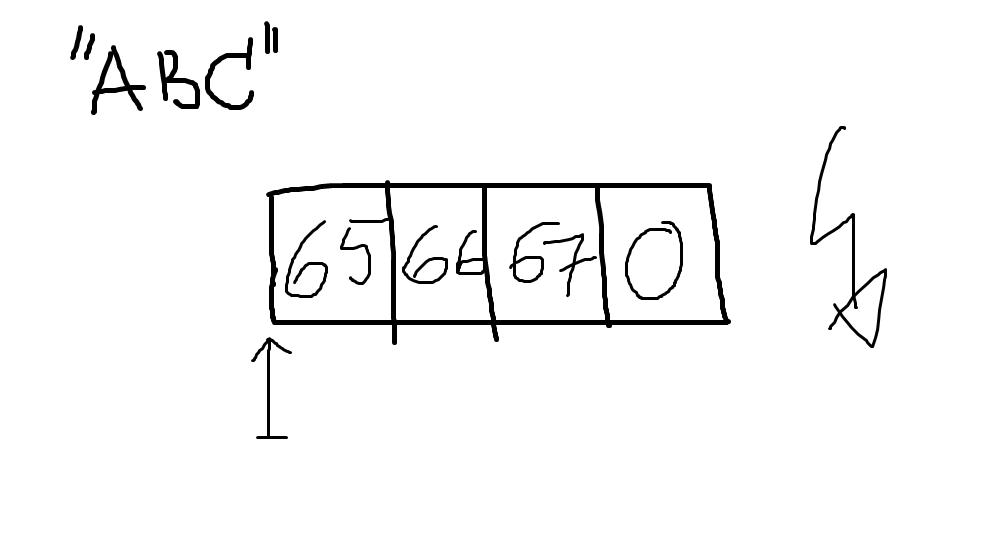 "ABC"
65 66 67 0